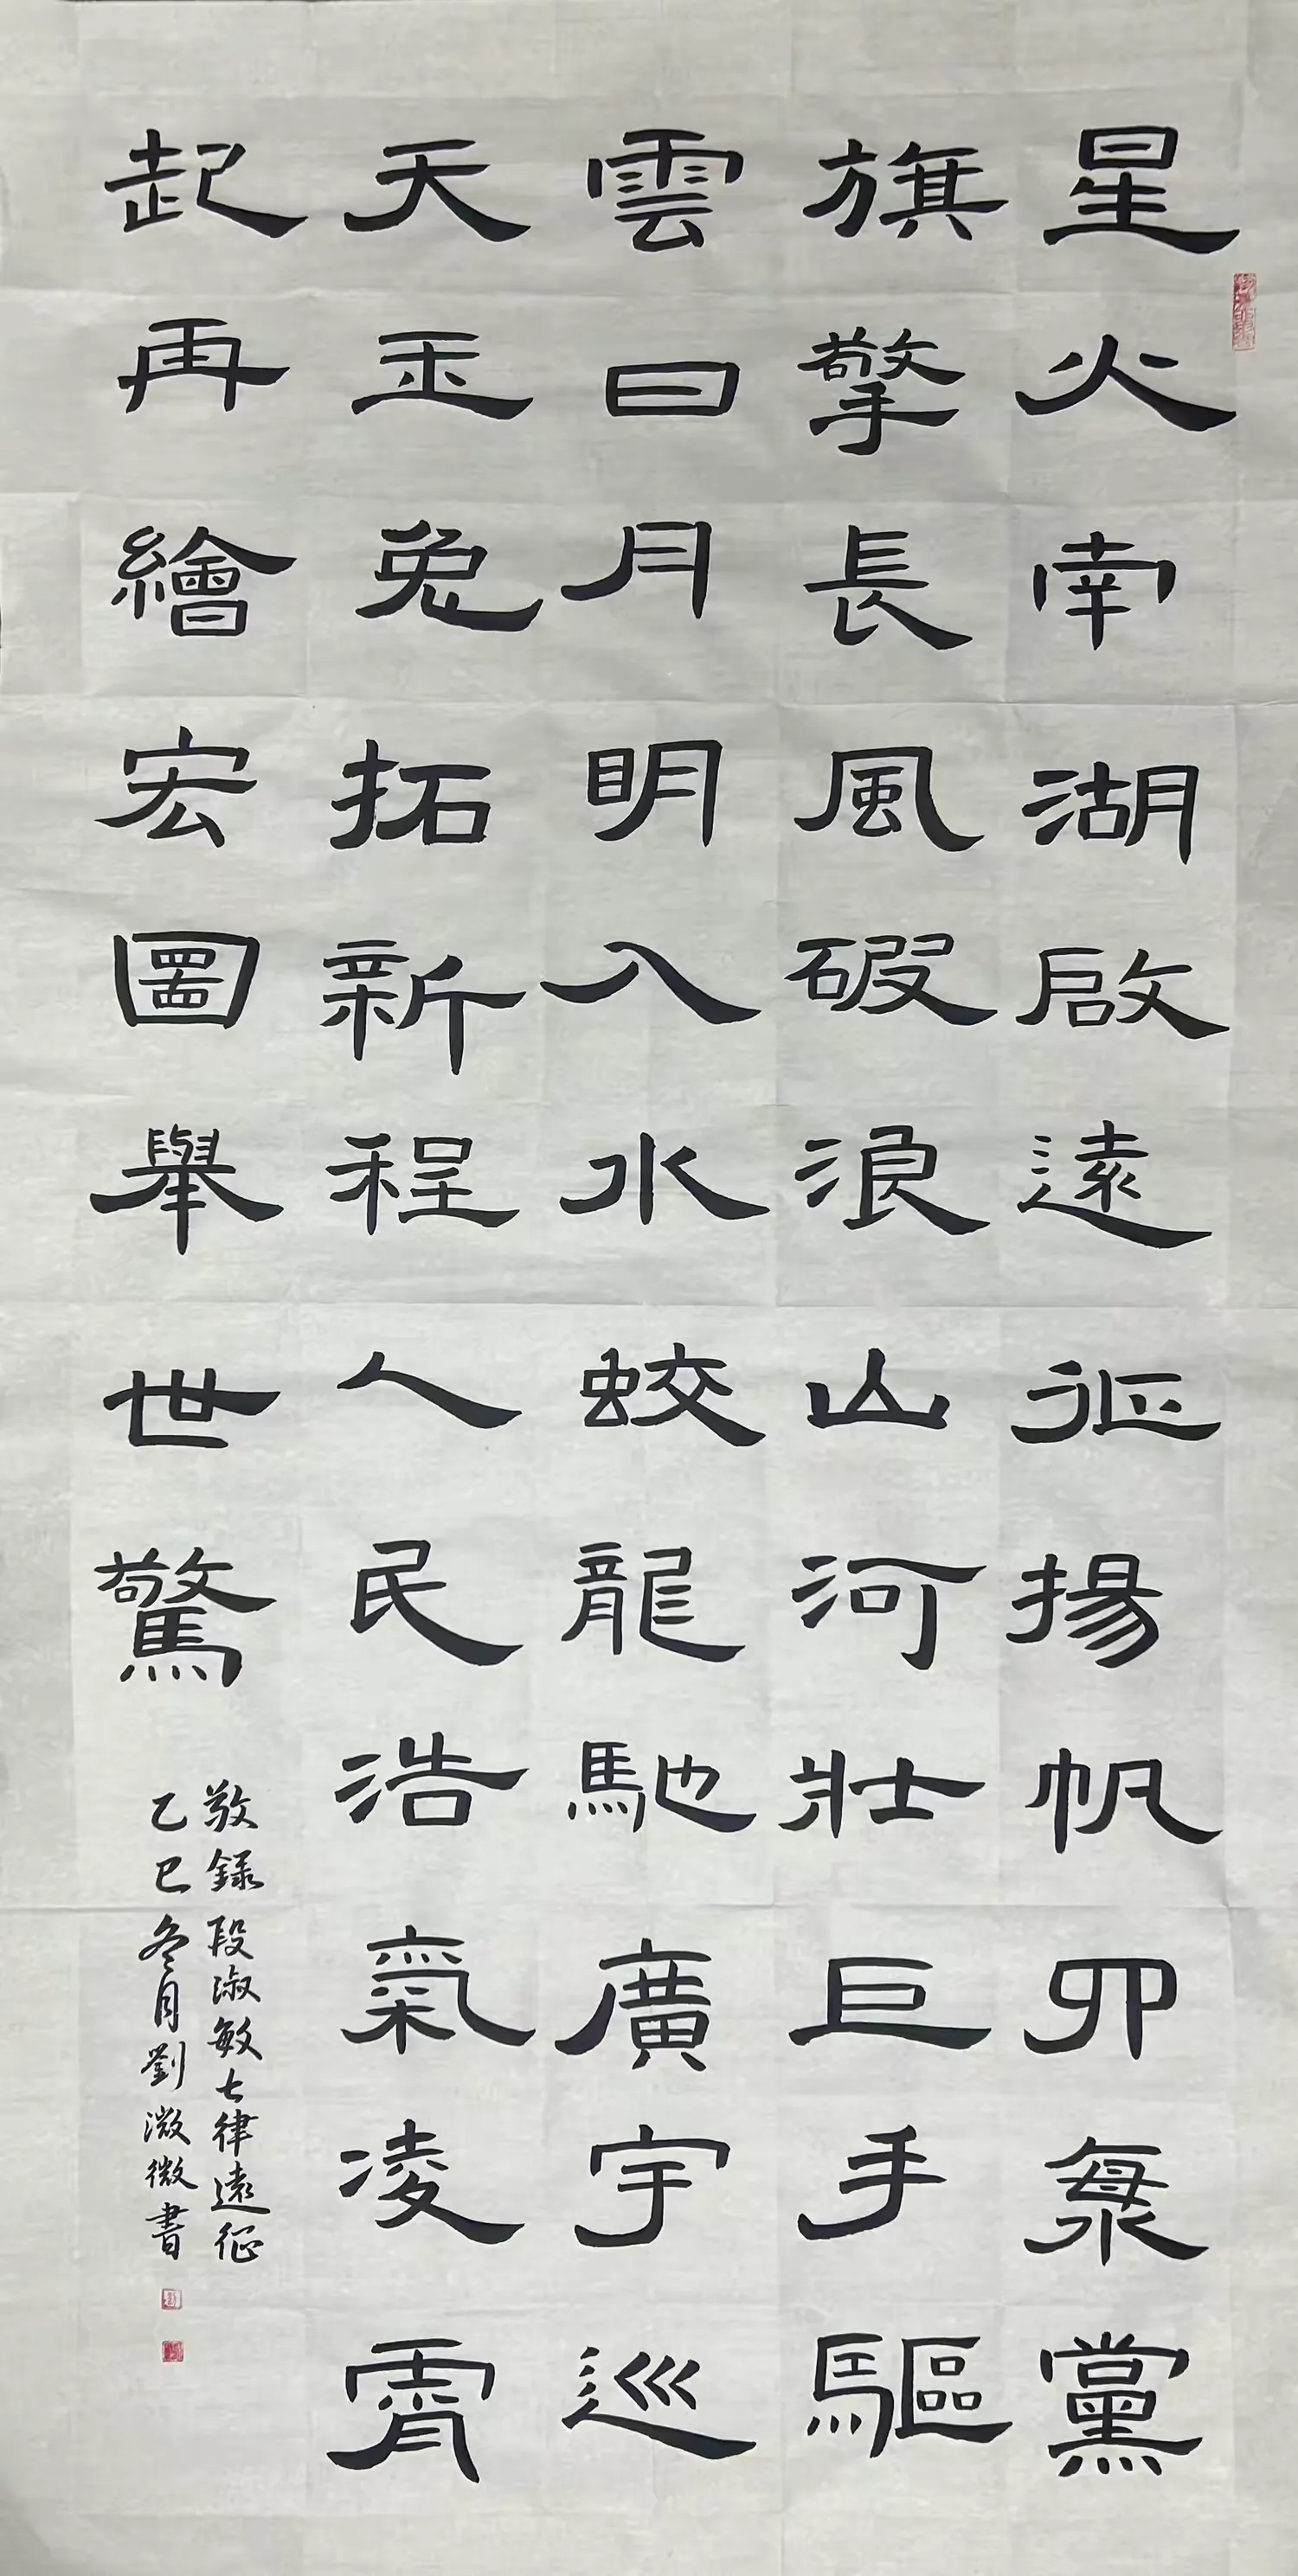 星火南湖啟遠征揚帆黨
旗擎長風破浪山河壯巨手驅
雲日月明入水蛟龍馳廣宇巡
天玉兔拓新程人民浩氣凌霄
起再繪宏圖舉世驚
敬錄段淑敏七律遠征
乙巳冬月劉溦微書